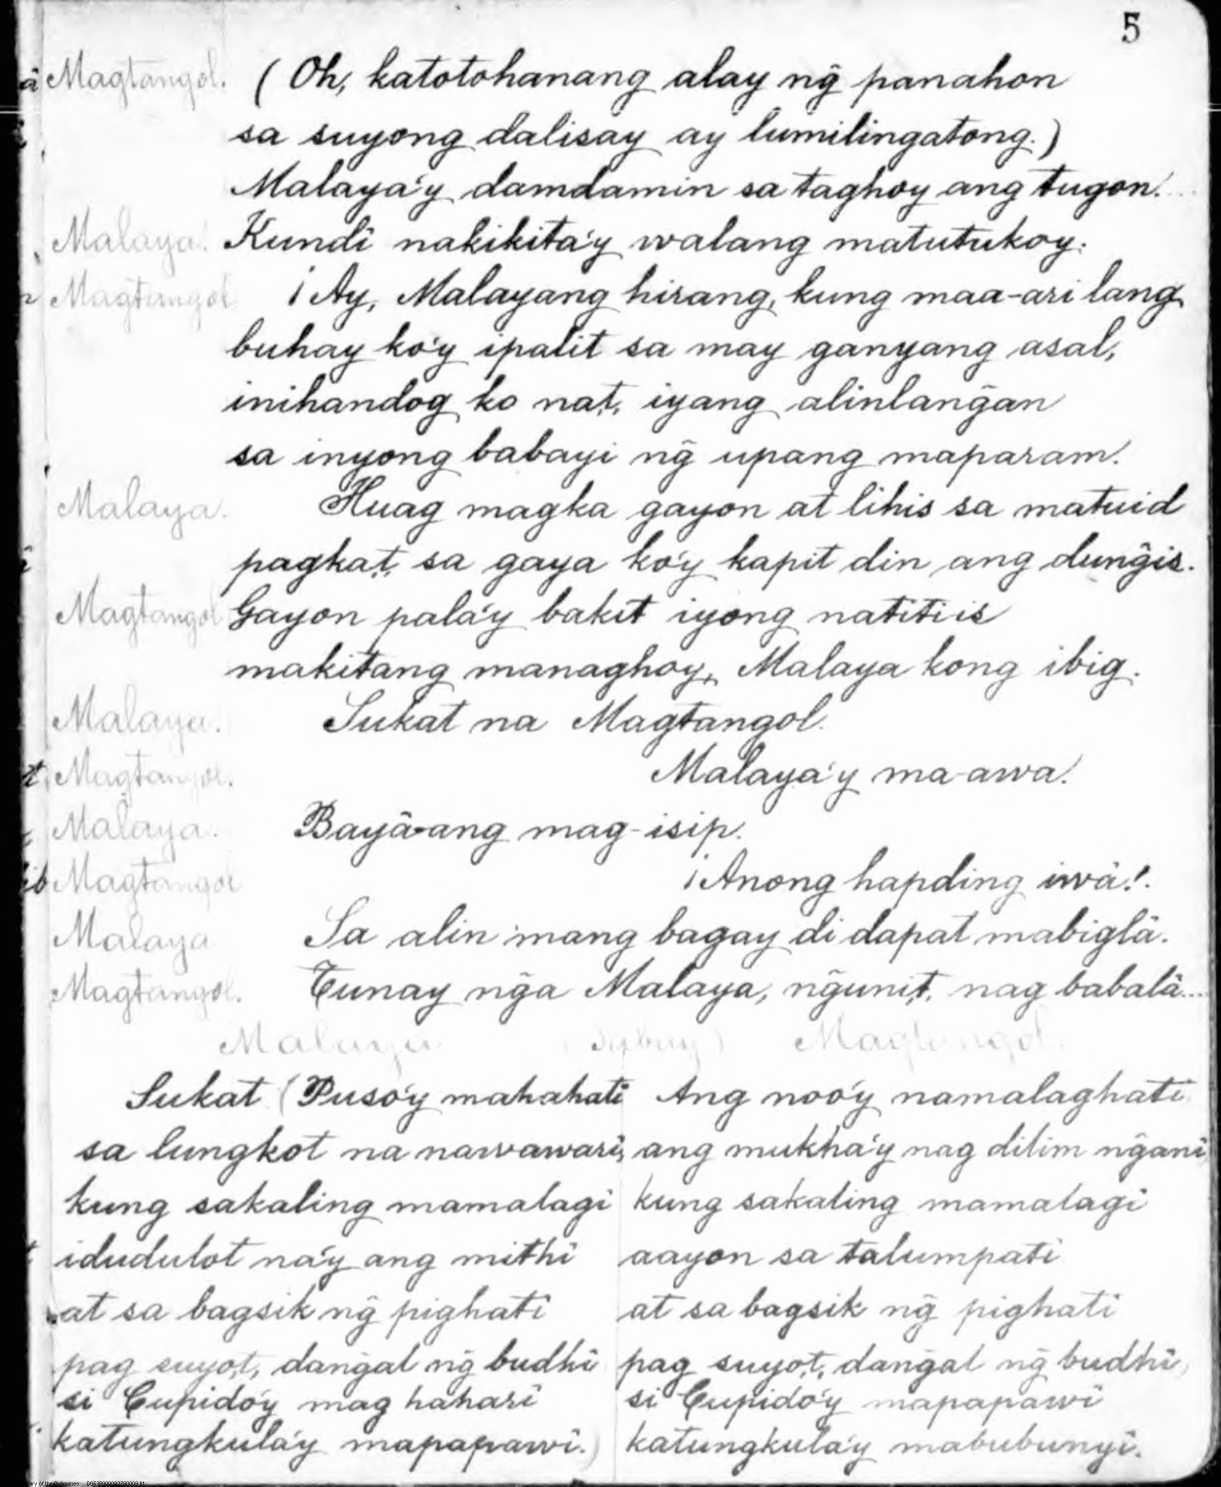 5
Magtangol. ( Oh, katotohanang alay nḡ panahon
sa suyong dalisay ay lumilingatong.)
Malaya'y damdamin sa taghoy ang tugon!...
Malaya. Kundî nakikita'y walang matutukoy.
Magtangol ¡Ay, Malayang hirang, kung maa-ari lang
buhay ko'y ipalit sa may ganyang asal,
inihandog ko na't, iyang alinlang̃an
sa inyong babayi nḡ upang maparam!
Malaya. Huag magka gayon at lihis sa matuid
pagka't, sa gaya ko'y kapit din ang dung̃is.
Magtangol Gayon pala'y bakit iyong natiti-is
makitang managhoy, Malaya kong ibig.
Malaya. Sukat na Magtangol.
Magtangol. Malaya'y ma-awa!
Malaya. Bayâ-ang mag-isip.
Magtangol ¡Anong hapding iwà!.
Malaya Sa alin mang bagay di dapat mabiglâ.
Magtangol. Tunay ng̃a Malaya, ng̃uni't, nag babalâ...
Malaya (Sabay) Magtangol
Sukat (Puso'y mahahati Ang noo'y namalaghati
sa lungkot na nawawari, ang mukha'y nag dilim ng̃ani
kung sakaling mamalagi kung sakaling mamalagi
idudulot na'y ang mithî aayon sa talumpati
at sa bagsik nḡ pighati at sa bagsik nḡ pighati
pag suyo't, dang̃al nḡ budhî pag suyo't, dang̃al nḡ budhî,
si Cupido'y mag hahari si Cupido'y mapapawi
katungkula'y mapapawi.) katungkula'y mabubunyi.